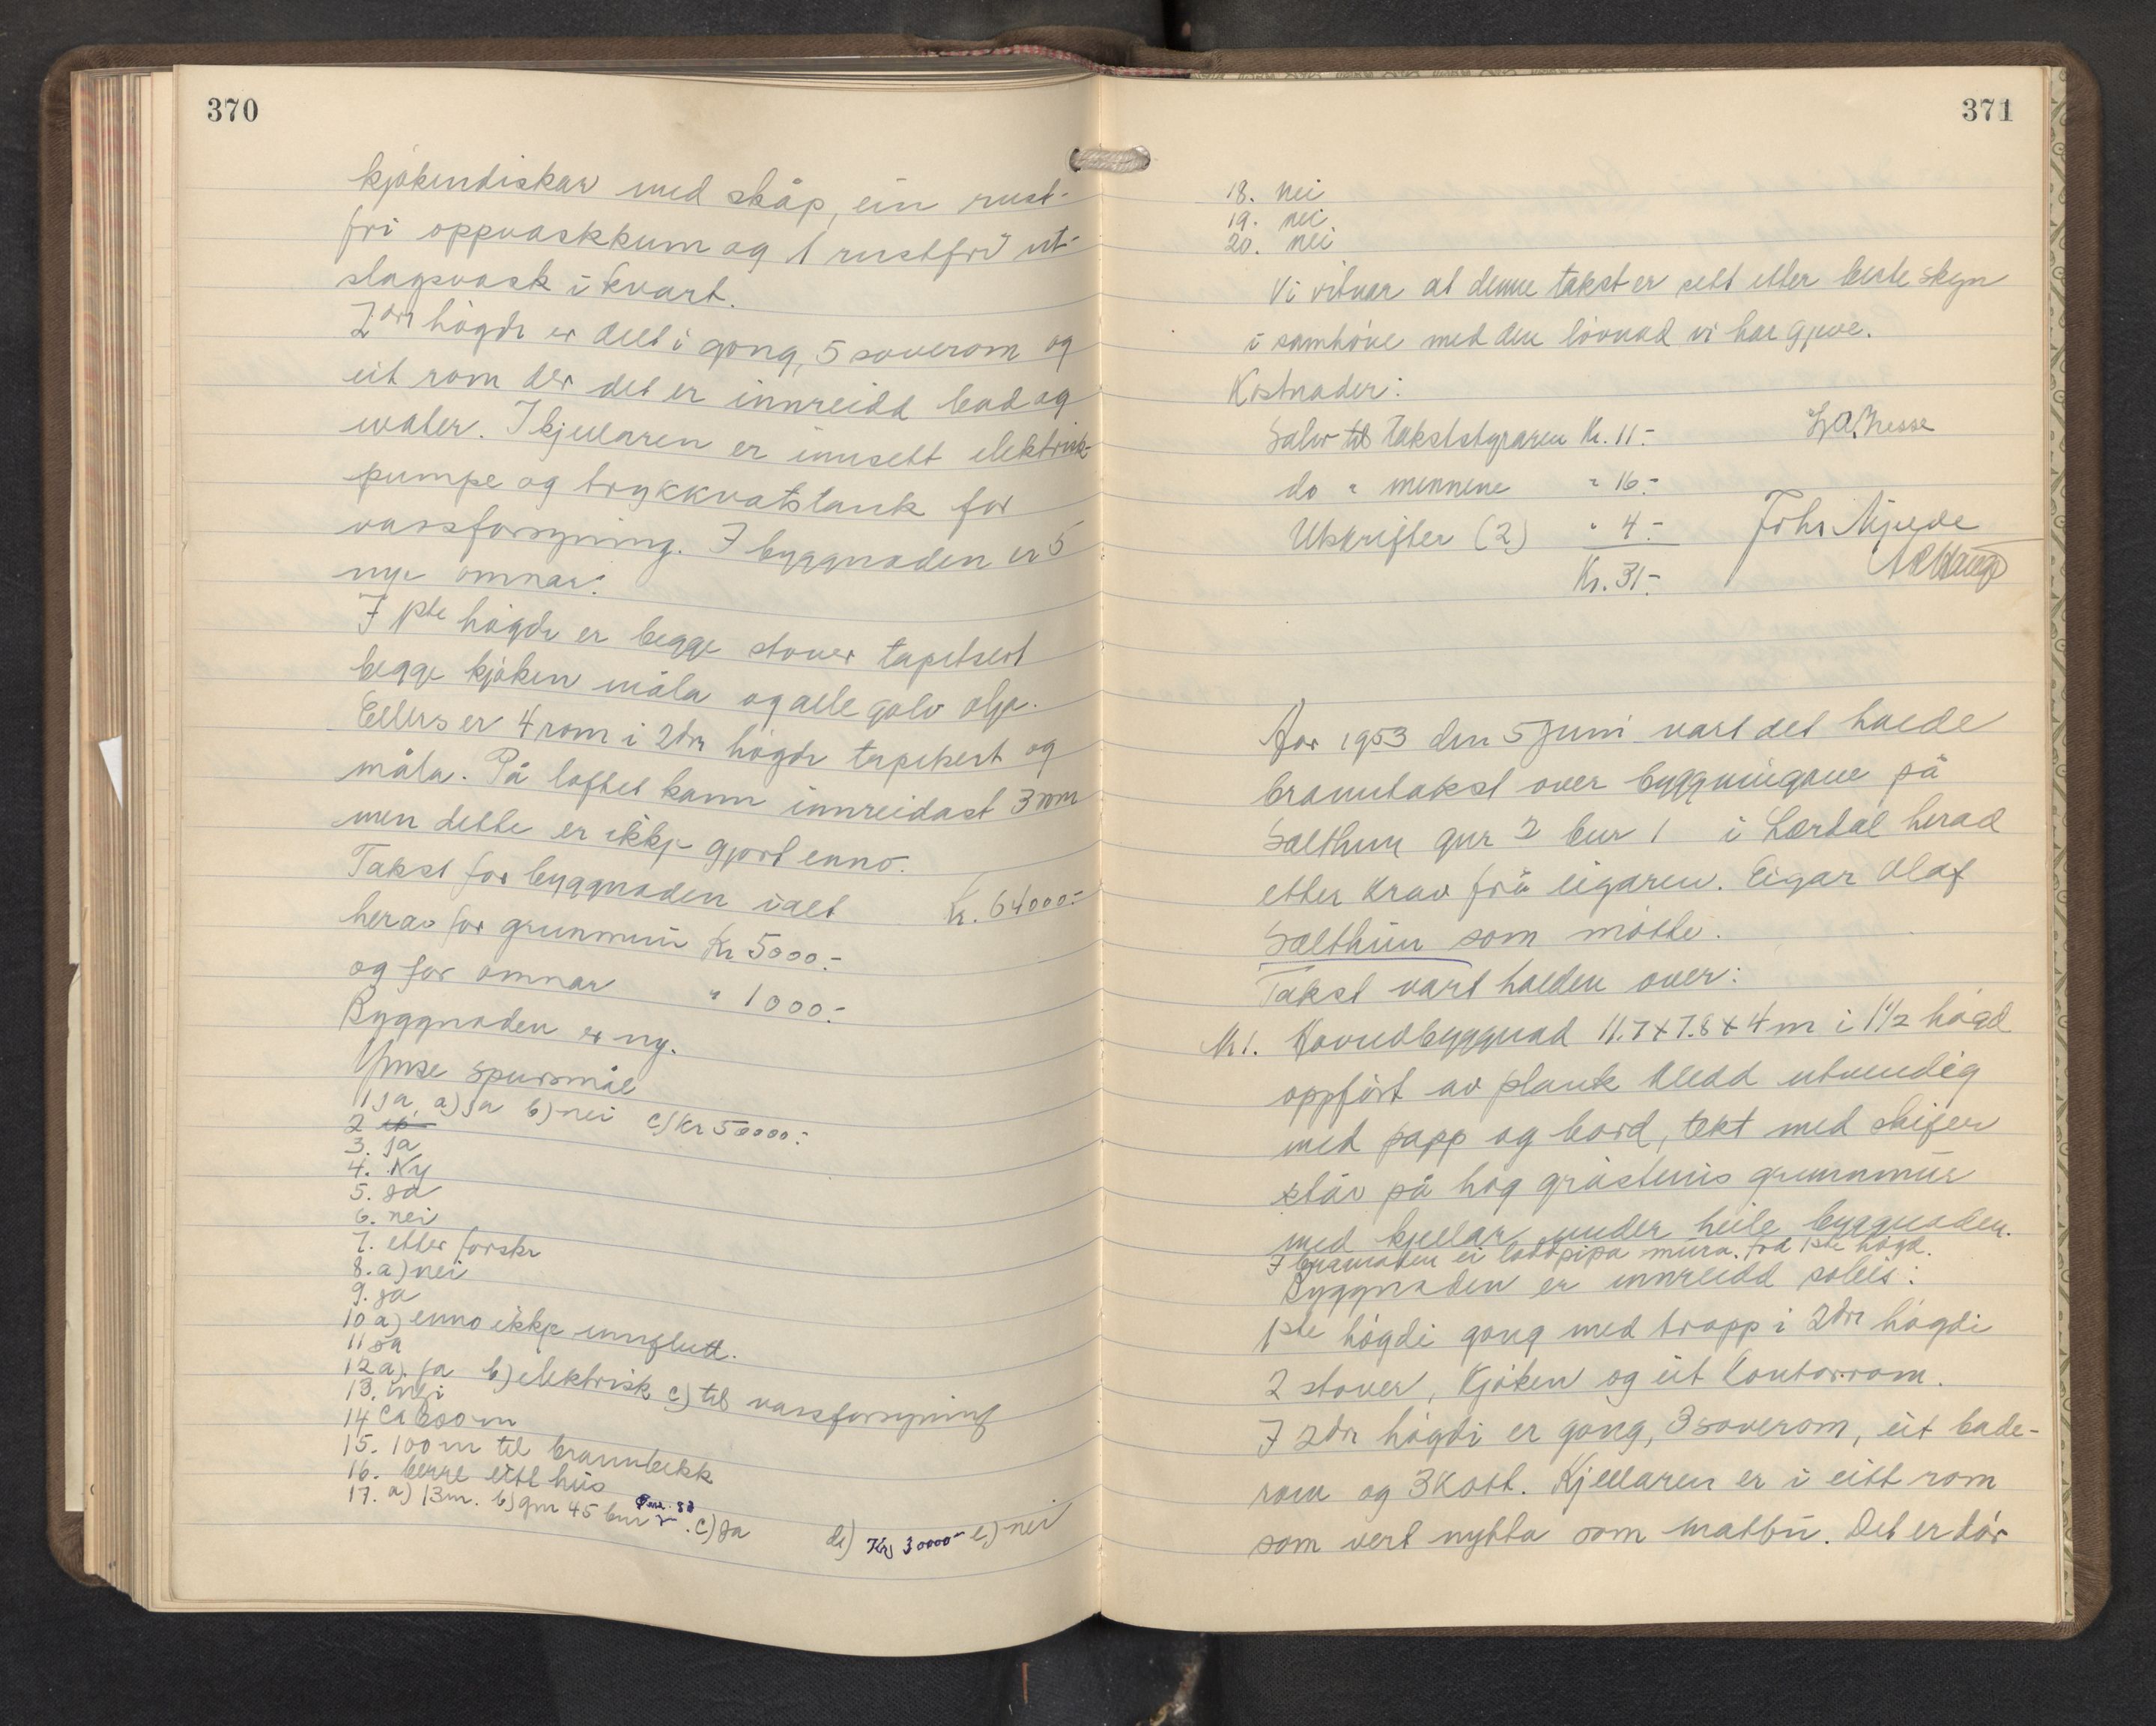 370
kjøkendiskar med skåp, ein rust-
fri oppvaskkum og 1 rustfri ut-
slagsvask i kvart.
2dre høgdi er delt i gong, 5 soverom og
eit rom der det er innreidd bad og
water. I kjellaren er innsett elektrisk
pumpe og trykkvatstank for
vassforsyning. I byggnaden er 5
nye omnar.
I 1ste høgdi er begge stover tapetsert
begge kjøken måla og alle golv olja.
Ellers er 4 rom i 2dre høgdi tapetsert og
måla. På loftet kann innreidast 3 rom
men dette er ikkje gjort enno.
Takst for byggnaden ialt Kr. 64000.-
herav for grunnmur Kr 5000.-
og for omnar " 1000.-
Byggnaden er ny.
Ymse spursmål
1 ja a) ja b) nei c) Kr 50000.-
2
3. ja
4. Ny
5. ja
6. nei
7. etter forskr
8. a) nei
9. ja
10 a) enno ikkje innflutt.
11 ja
12 a) ja b) elektrisk c) til vassforsyning
13. nei
14 ca 600 m
15. 100 m til brannbekk
16. berre eitt hus
17. a) 13m. b) gnr 45 bnr c) ja d) Kr 30000.- e) nei
371
18. nei
19. nei
20. nei
Vi vitnar at denne takst er sett etter beste skyn
i samhøve med den lovnad vi har gjeve.
Kostnader:
Salær til takststyraren Kr. 11.-
L.A. Nesse
do " mennene " 16.-
Utskrifter (2) " 4.-
Kr. 31.-
Johs Njøde
A R Hauge
Aar 1953 den 5 Juni vart det halde
branntakst over byggningane på
Sælthun gnr 2 bnr 1 i Lærdal herad
etter krav frå eigaren. Eigar Olaf
Sælthun som møtte.
Takst vart halden over:
Nr 1. Hovudbyggnad 11.7 x 7.8 x 4 m i 1 1/2 høgd
oppført av plank kledd utvendig
med papp og bord, tekt med skifer
står på høg gråsteins grunnmur
med kjellar under heile byggnaden.
I byggnaden ei loddpipa mura frå 1ste høgd.
Byggnaden er innreidd soleis:
1ste høgdi gong med trapp i 2dre høgdi
2 stover, kjøken og eit kontorrom.
I 2dre høgdi er gong, 3 soverom, eit bade-
rom og 3 kott. Kjellaren er i eitt rom
som vert nytta som matbu. Det er tør